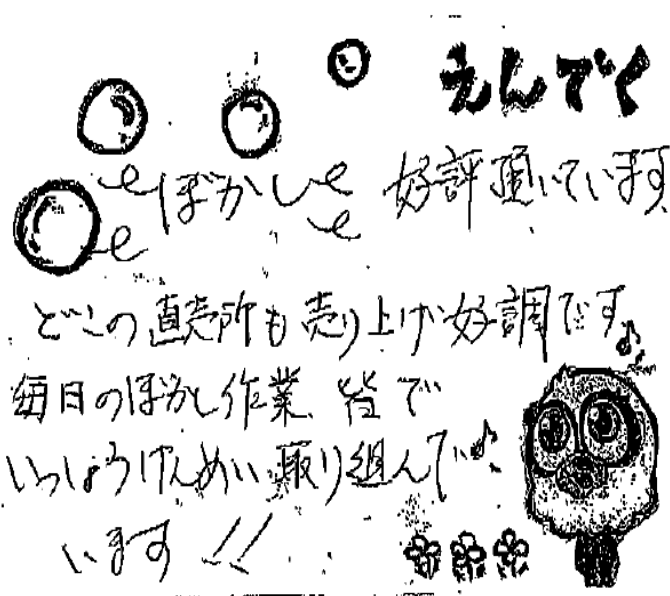 えんでく
ぼかし 好評頂いています
どこの直売所も売り上げ好調です。
毎日のぼかし作業、皆で
いっしょうけんめい取り組んで
います!!